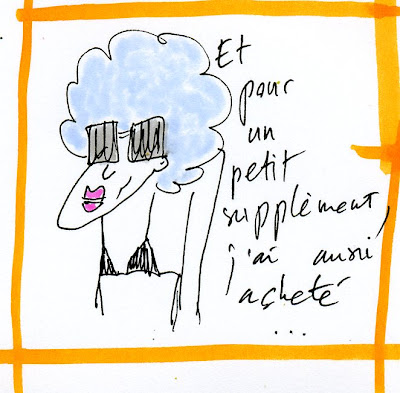 Et
pour
un
petit
supplèment,
j'ai aussi
acheté
...